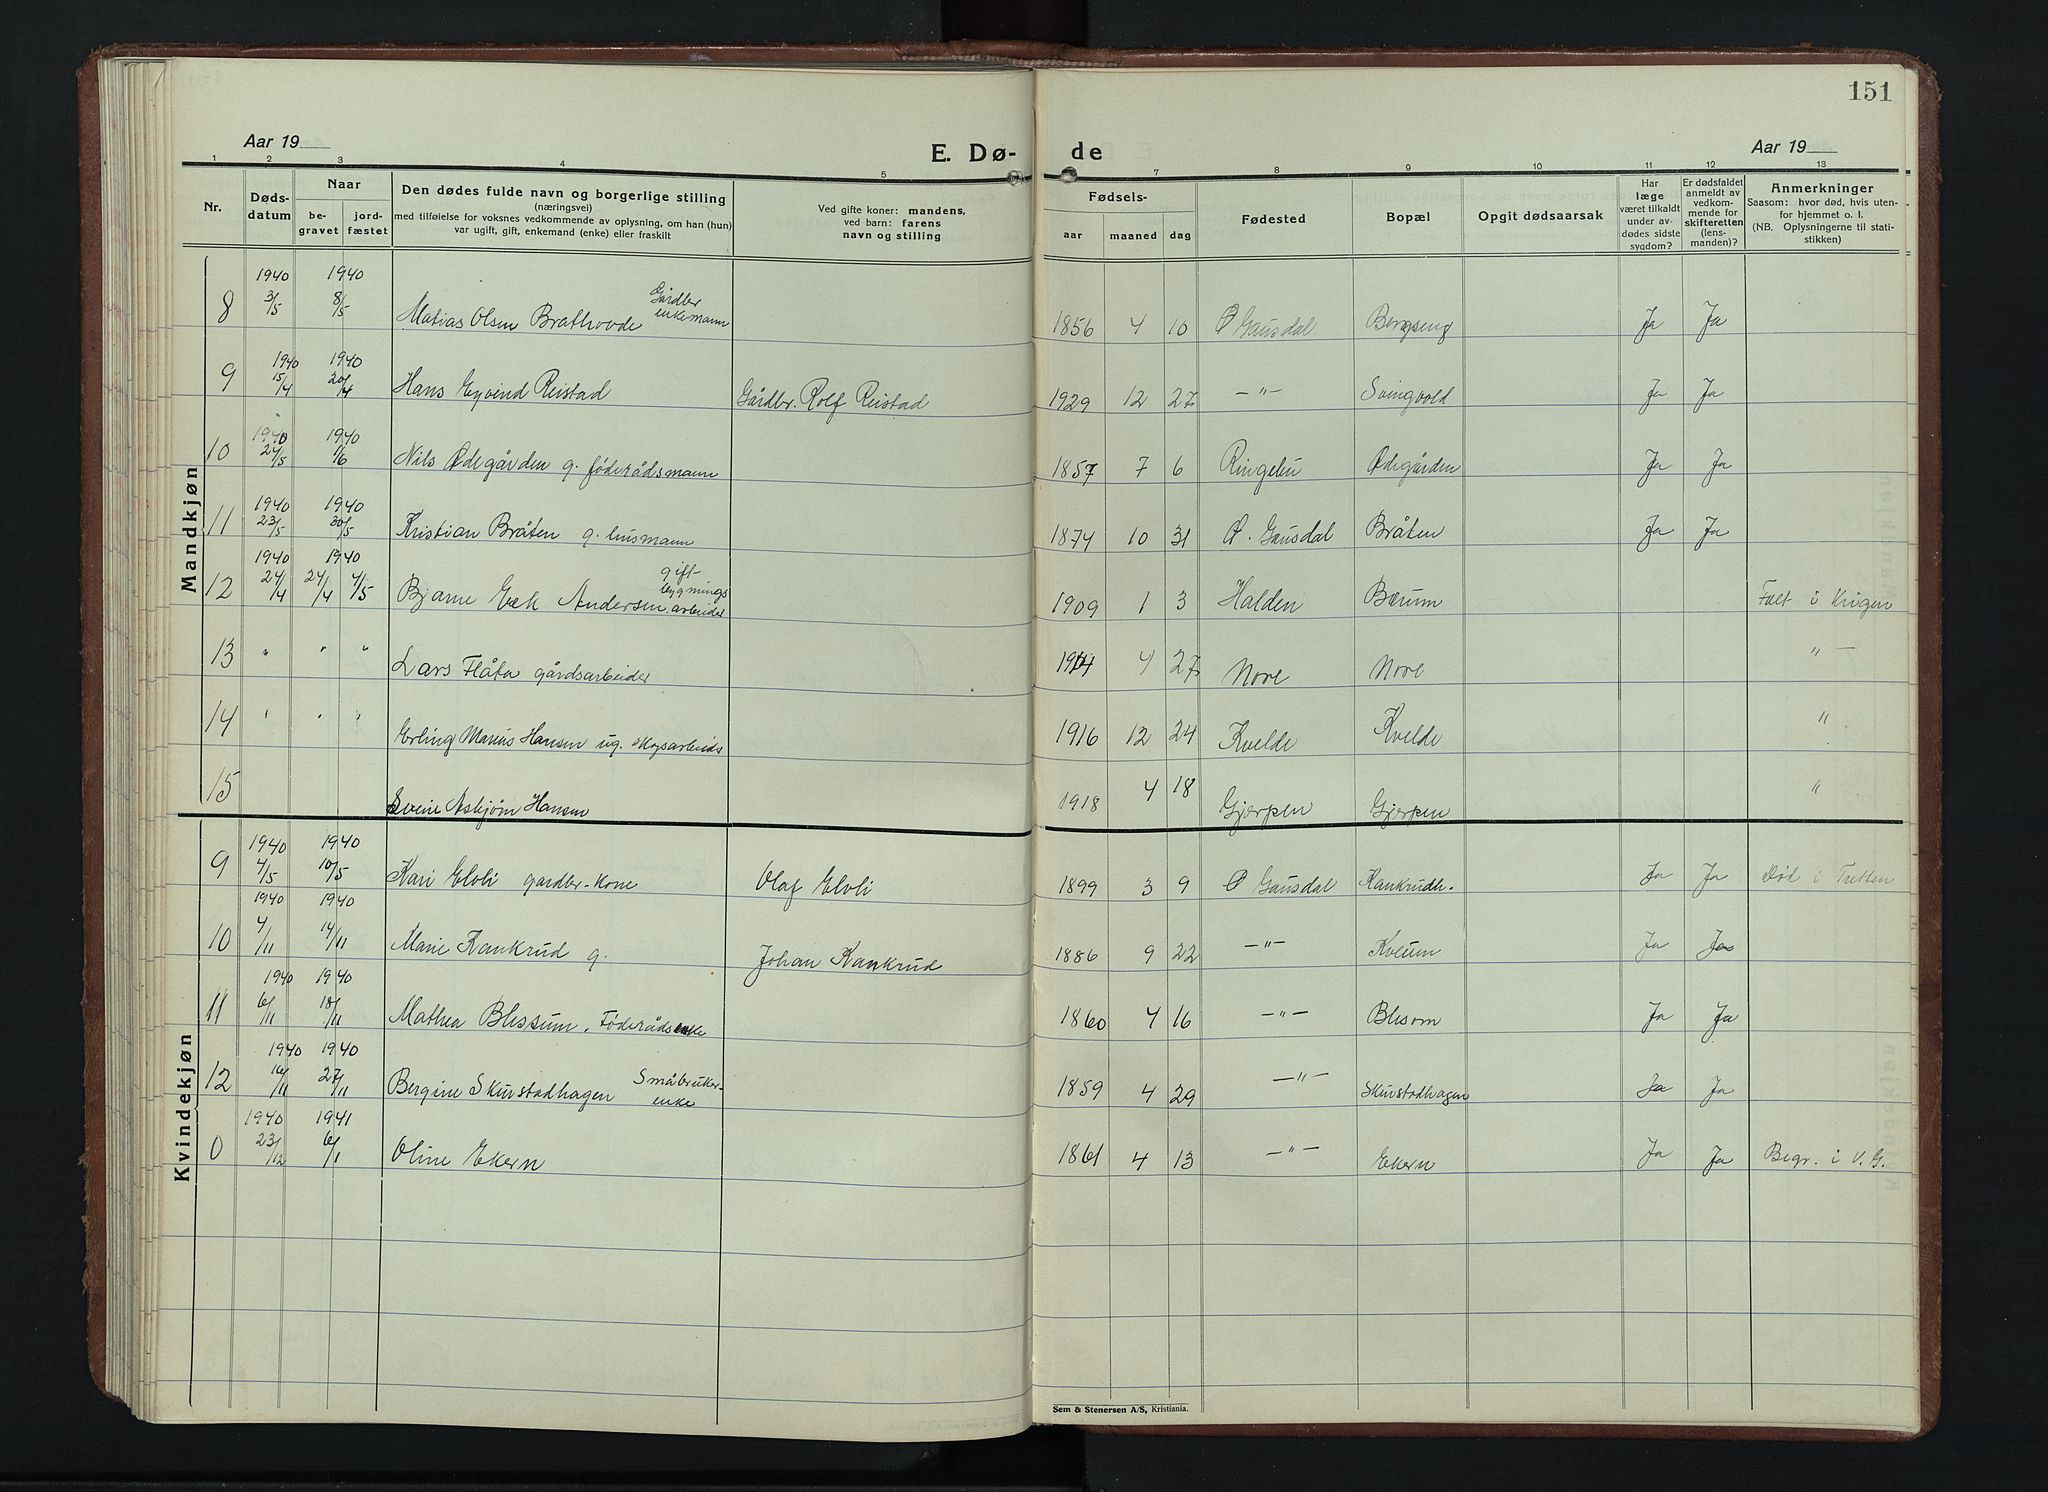 151
Aar 19
E. Dø-
de
Aar 19
1 2 3 4 5 7 8 9 10 11 12 13
Nr.
Døds-
datum
Naar
be-
gravet
jord-
fæstet
Den dødes fulde navn og borgerlige stilling
(næringsvei)
med tilføielse for voksnes vedkommende av oplysning, om han (hun)
var ugift, gift, enkemand (enke) eller fraskilt
Ved gifte koner: mandens,
ved barn: farens
navn og stilling
Fødsels-
aar
maaned
dag
Fødested
Bopæl
Opgit dødsaarsak
Har
læge
været tilkaldt
under av-
dødes sidste
sygdom?
Er dødsfaldet
anmeldt av
vedkom-
mende for
skifteretten
(lens-
manden)?
Anmerkninger
Saasom: hvor død, hvis uten-
for hjemmet o. l.
(NB. Oplysningerne til stati-
stikken)
Mandkjøn
8 1940 3/5 1940 8/5 Matias Olsen Brathovde Gårdbr enkemann 1856 4 10 Ø Gausdal Bergseng Ja Ja
9 1940 15/4 1940 20/4 Hans Eyvind Reistad Gårdbr. Rolf Reistad 1929 12 27 —"— Svingvold Ja Ja
10 1940 24/5 1940 1/6 Nils Ødegården g. føderådsmann 1857 7 6 Ringebu Ødegården Ja Ja
11 1940 23/5 1940 30/5 Kristian Bråten g. husmann 1874 10 31 Ø. Gausdal Bråten Ja Ja
12 1940 24/4 1940 24/4 4/5 Bjarne Eek Andersen gift bygnings arbeider 1909 1 3 Halden Bærum Falt i Krigen
13 " " " Lars Flåta gårdsarbeider 1914 4 27 Nore Nore "—
14 " " " Erling Marius Hansen ug. skogsarbeider 1916 12 24 Kvelde Kvelde "
15 Asbjørn Hansen 1918 4 18 Gjerpen Gjerpen "
Kvindekjøn
9 1940 4/5 1940 10/5 Kari Elvli gardbr-kone Olaf Elvli 1899 3 9 Ø Gausdal Kankrudh. Ja Ja Død i Tretten
10 1940 4/11 1940 14/11 Marie Kankrud g. Johan Kankrud 1886 9 22 —"— Kveum Ja Ja
11 1940 6/11 1940 18/11 Mathea Blessum. Føderådsenke 1860 4 16 —"— Blesom Ja Ja
12 1940 16/11 1940 27/11 Bergine Skurstadhagen Småbruker-enke 1859 4 29 —"— Skurstadhagen Ja Ja
0 1940 23/12 1941 6/1 Oline Ekern 1861 4 13 —"— Ekern Ja Ja Begr. i V. G.
Sem & Stenersen A/S, Kristiania.